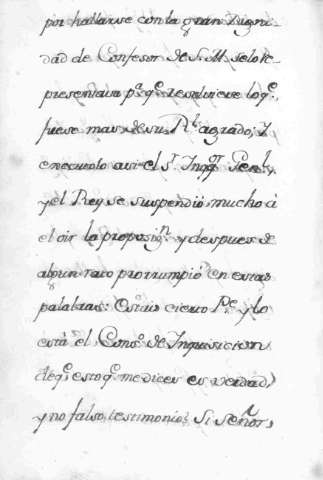 por hallarse con la gran Digni-
dad de Confesor de S. M. se lo re-
presentava pª. qᵉ. resolviese lo qᵉ.
fuese mas de su Rˡ. agrado, y
executolo asi el Sʳ. Inqqºʳ. Genˡ. y
y el Rey se suspendió mucho á
el oir la proposigⁿ. y despues de
algun rato prorrumpió en estas
palabras: Estais cierto Pᵉ. y lo
está el Consº. de Inquisicion
de qᵉ. esto qᵉ. me dices es verdad,
y no falso testimonio? Si Señor,